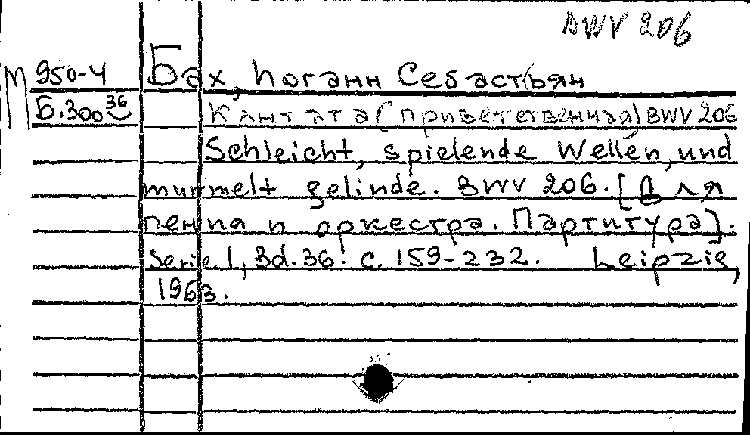 BWV 206
М 950-4 Бах, Иоганн Себастьян
Б.300 36 Кантата (приветственная) BWV 206
Schleicht, spielende Wellen, und
murmelt gelinde. BWV 206. [Для
пения и оркестра. Партитура].
Serie I, Bd. 36. с. 159-232. Leipzig,
1963.